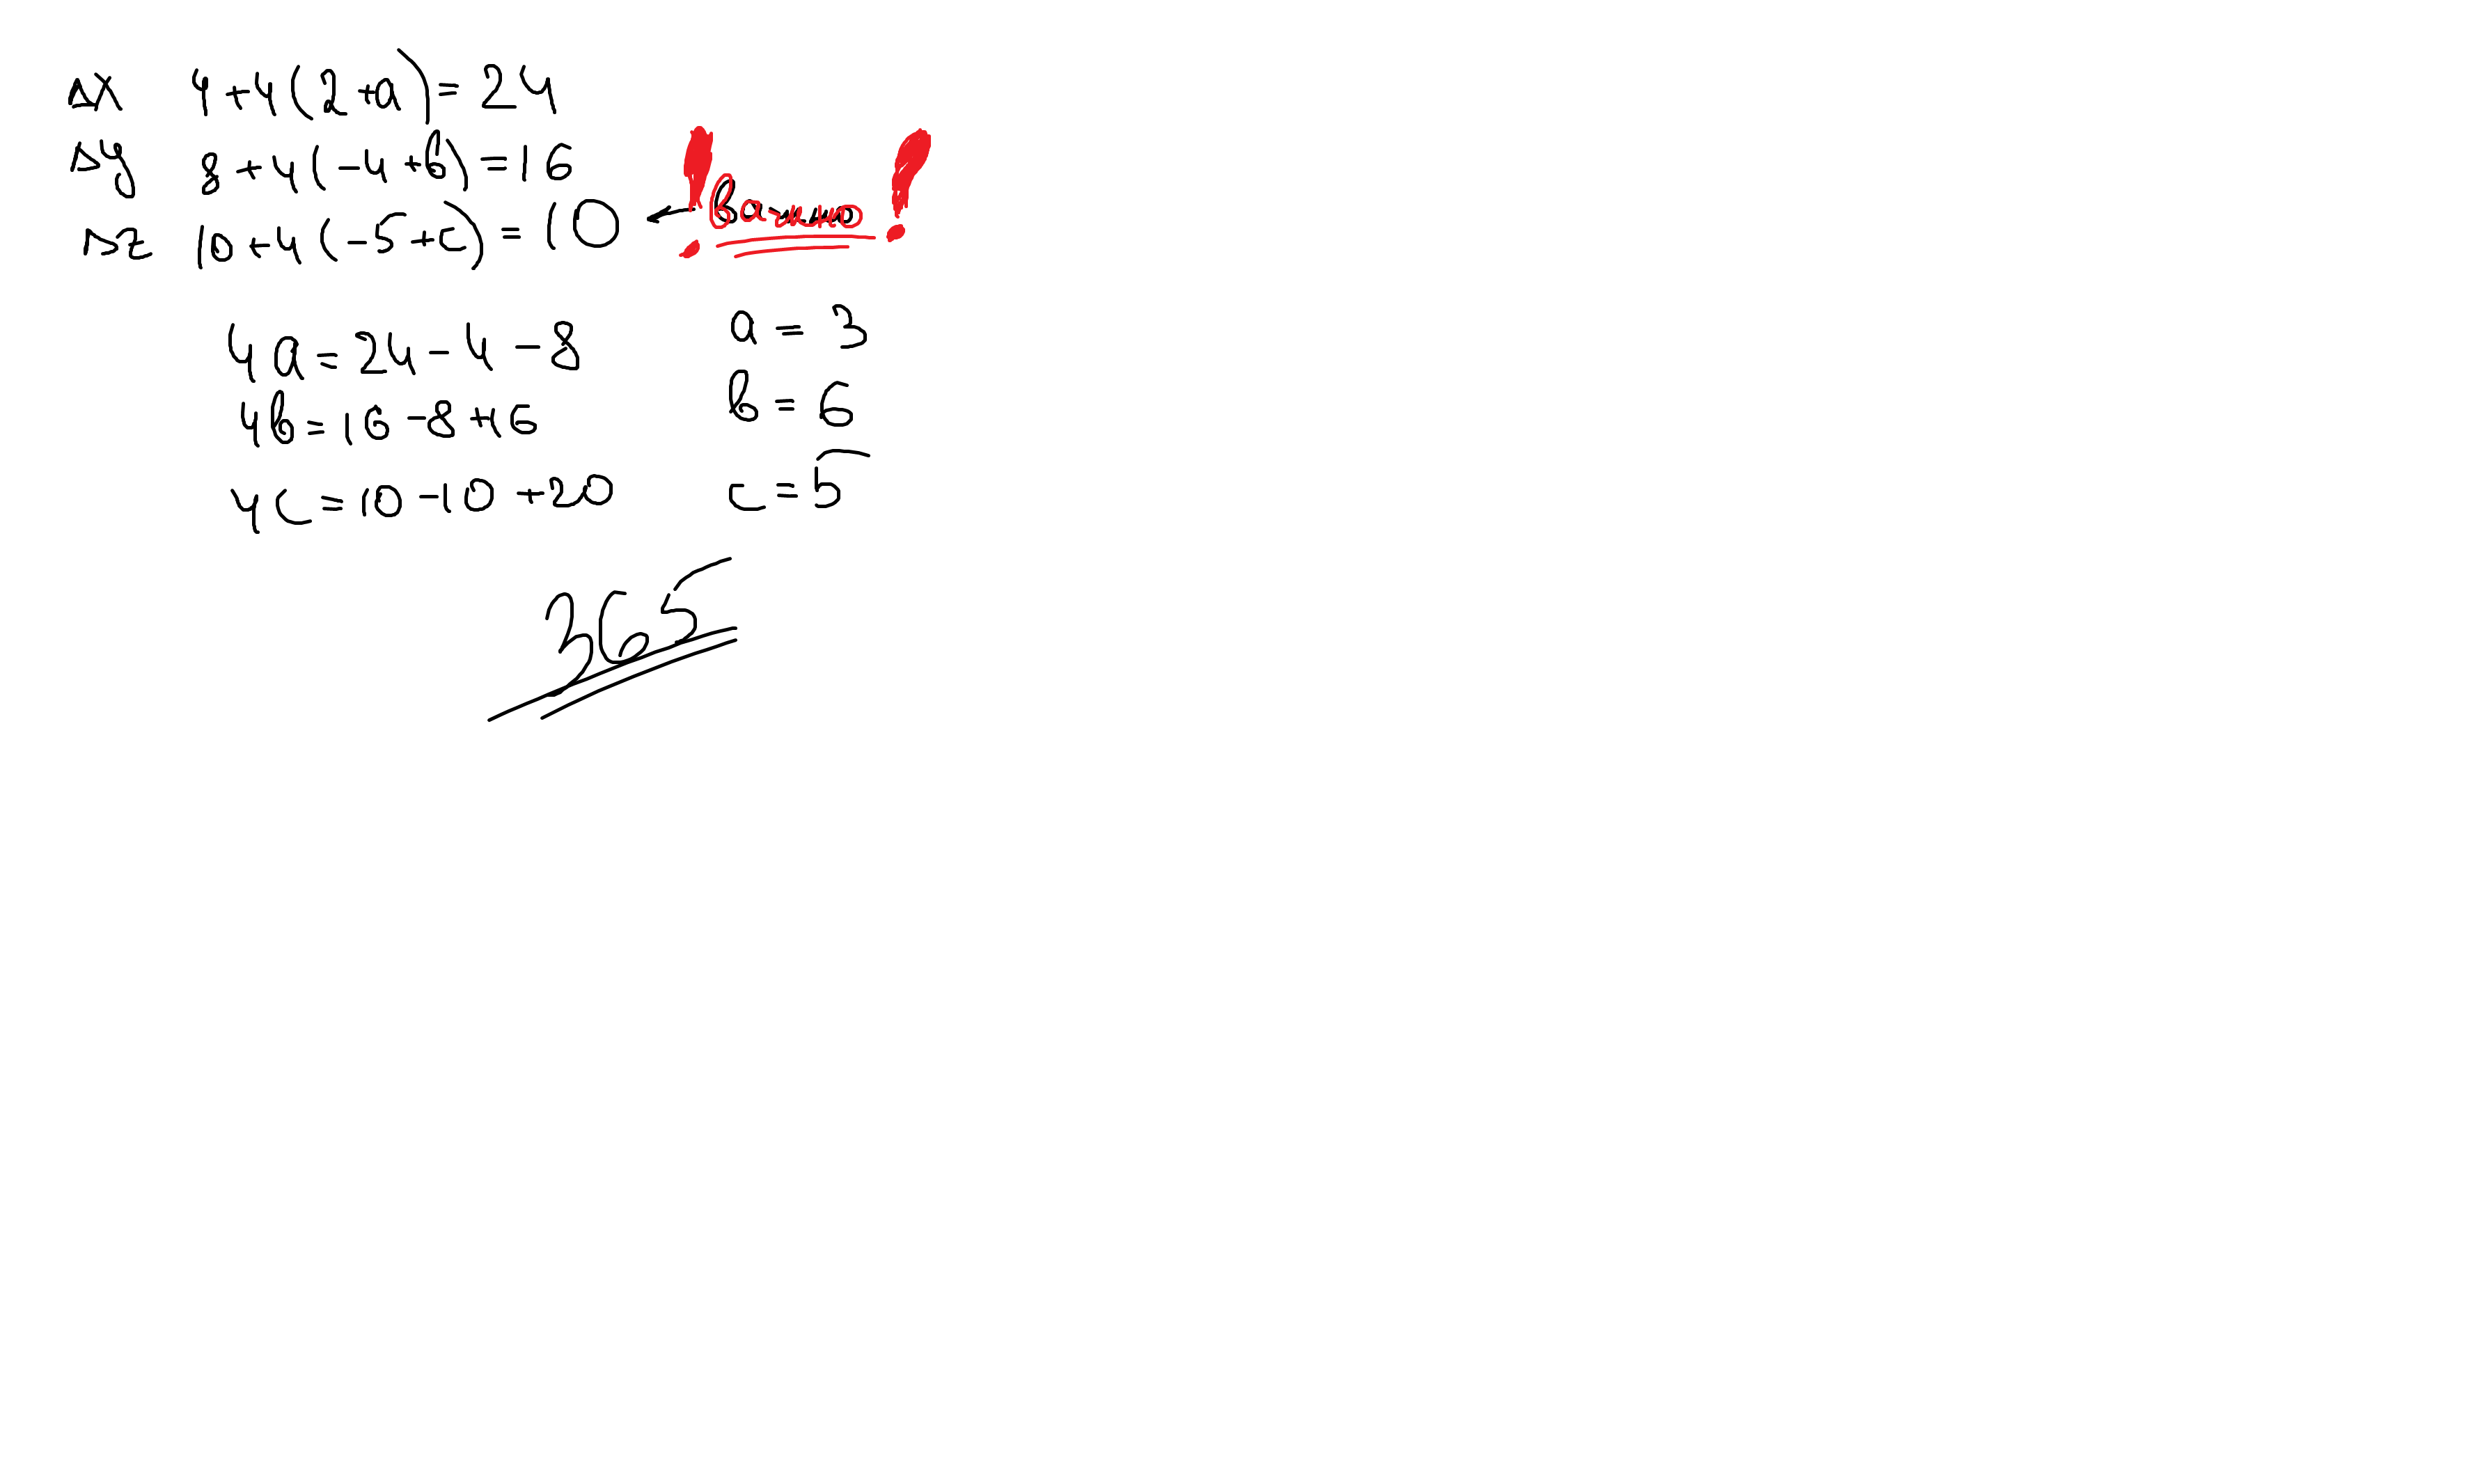 Δx 4+4(2+a)=24
Δy 8+4(-4+b)=16
Δz 10+4(-5+c)=10 ← ! важно !
4a=24-4-8 a=3
4b=16-8+16 b=6
4c=10-10+20 c=5
365